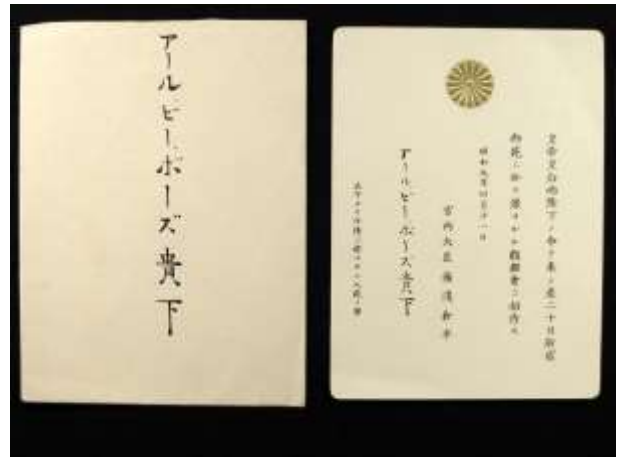 アールビー、ボーズ貴下
皇后両陛下ノ命ヲ奉シ来二十日新宿
御苑ニ於テ催サルル観桜會ニ招待ス
昭和九年四月十一日
宮内大臣 湯浅倉平
アールビーボース貴下